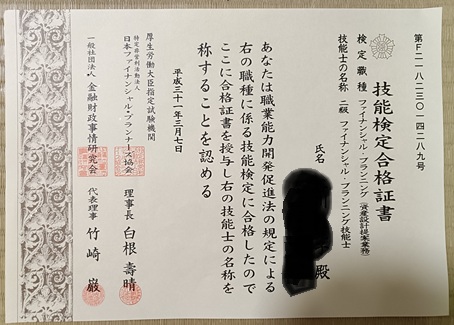 第F二一八二三〇一四二八九号
技能検定合格証書
検定職種 ファイナンシャル・プランニング(資産設計提案業務)
技能士の名称 二級ファイナンシャル・プランニング技能士
氏名
殿
あなたは職業能力開発促進法の規定による
右の職種に係る技能検定に合格したので
ここに合格証書を授与し右の技能士の名称を
称することを認める
平成三十一年三月七日
厚生労働大臣指定試験機関
特定非営利活動法人
日本ファイナンシャル・プランナーズ協会
理事長 白根壽晴
一般社団法人 金融財政事情研究会
代表理事 竹崎巌